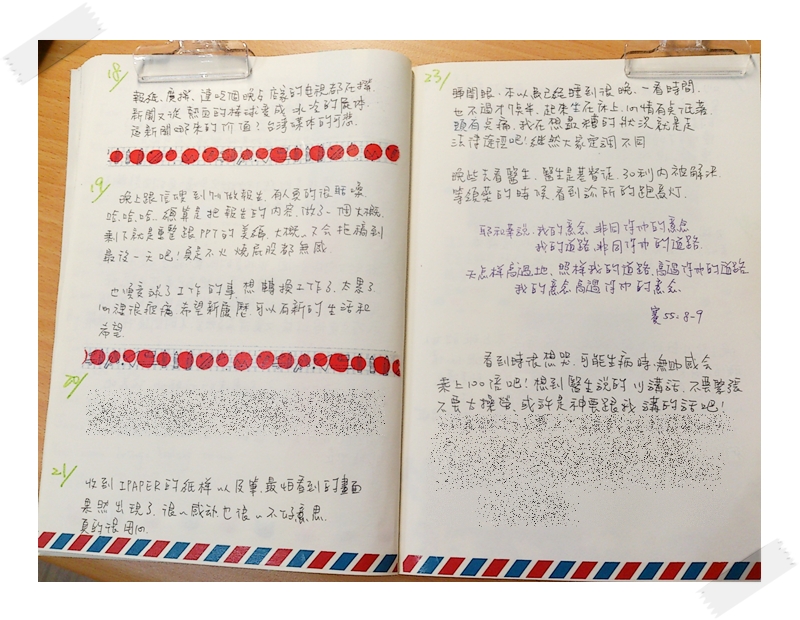 18/
報紙、廣播、連吃個晚占店家的电視都在播
新聞又從熱血的棒球变成水冷的屍体
這新聞哪來的价值?台湾媒体的可悲
19/
晚上跟哲理到7-11做報告,有人真的很聒噪
哈.哈.哈..總算是把報告的內容做了一個大概
剩下就是重整跟PPT的美編,大概不会拖稿到
最後一天吧!真是不火燒屁股都無感
也順意談了工作的事,想轉換工作了.太累了
心裡很疲憊,希望新履歷可以有新的生活和
希望.
20/
21/
收到IPAPER的紙样以及筆.最怕看到的畫面
果然出現了.很心感动也很心不好意思.
真的很用心.
23/
睜開眼.本以為已経睡到很晚.一看時間.
也不過才7点半.起來坐在床上,心情有点低落
頭有点痛.我在想最糟的狀況就是走
法律途徑吧!雖然大家定調不同
晚些去看醫生.醫生是基督徒.30秒內被解決
等領藥的時候看到診所的跑馬灯.
耶和華說.我的意念.非同你们的意念
我的道路.非同你们的道路.
天怎样高過地.照样我的道路.高過你们的道路
我的意念高過你们的意念
賽55:8-9
看到時很想哭.可能生病時,無助感会
乘上100倍吧!想到醫生說的
講話.不要緊張
不要太操勞.或許是神要跟我講的話吧!